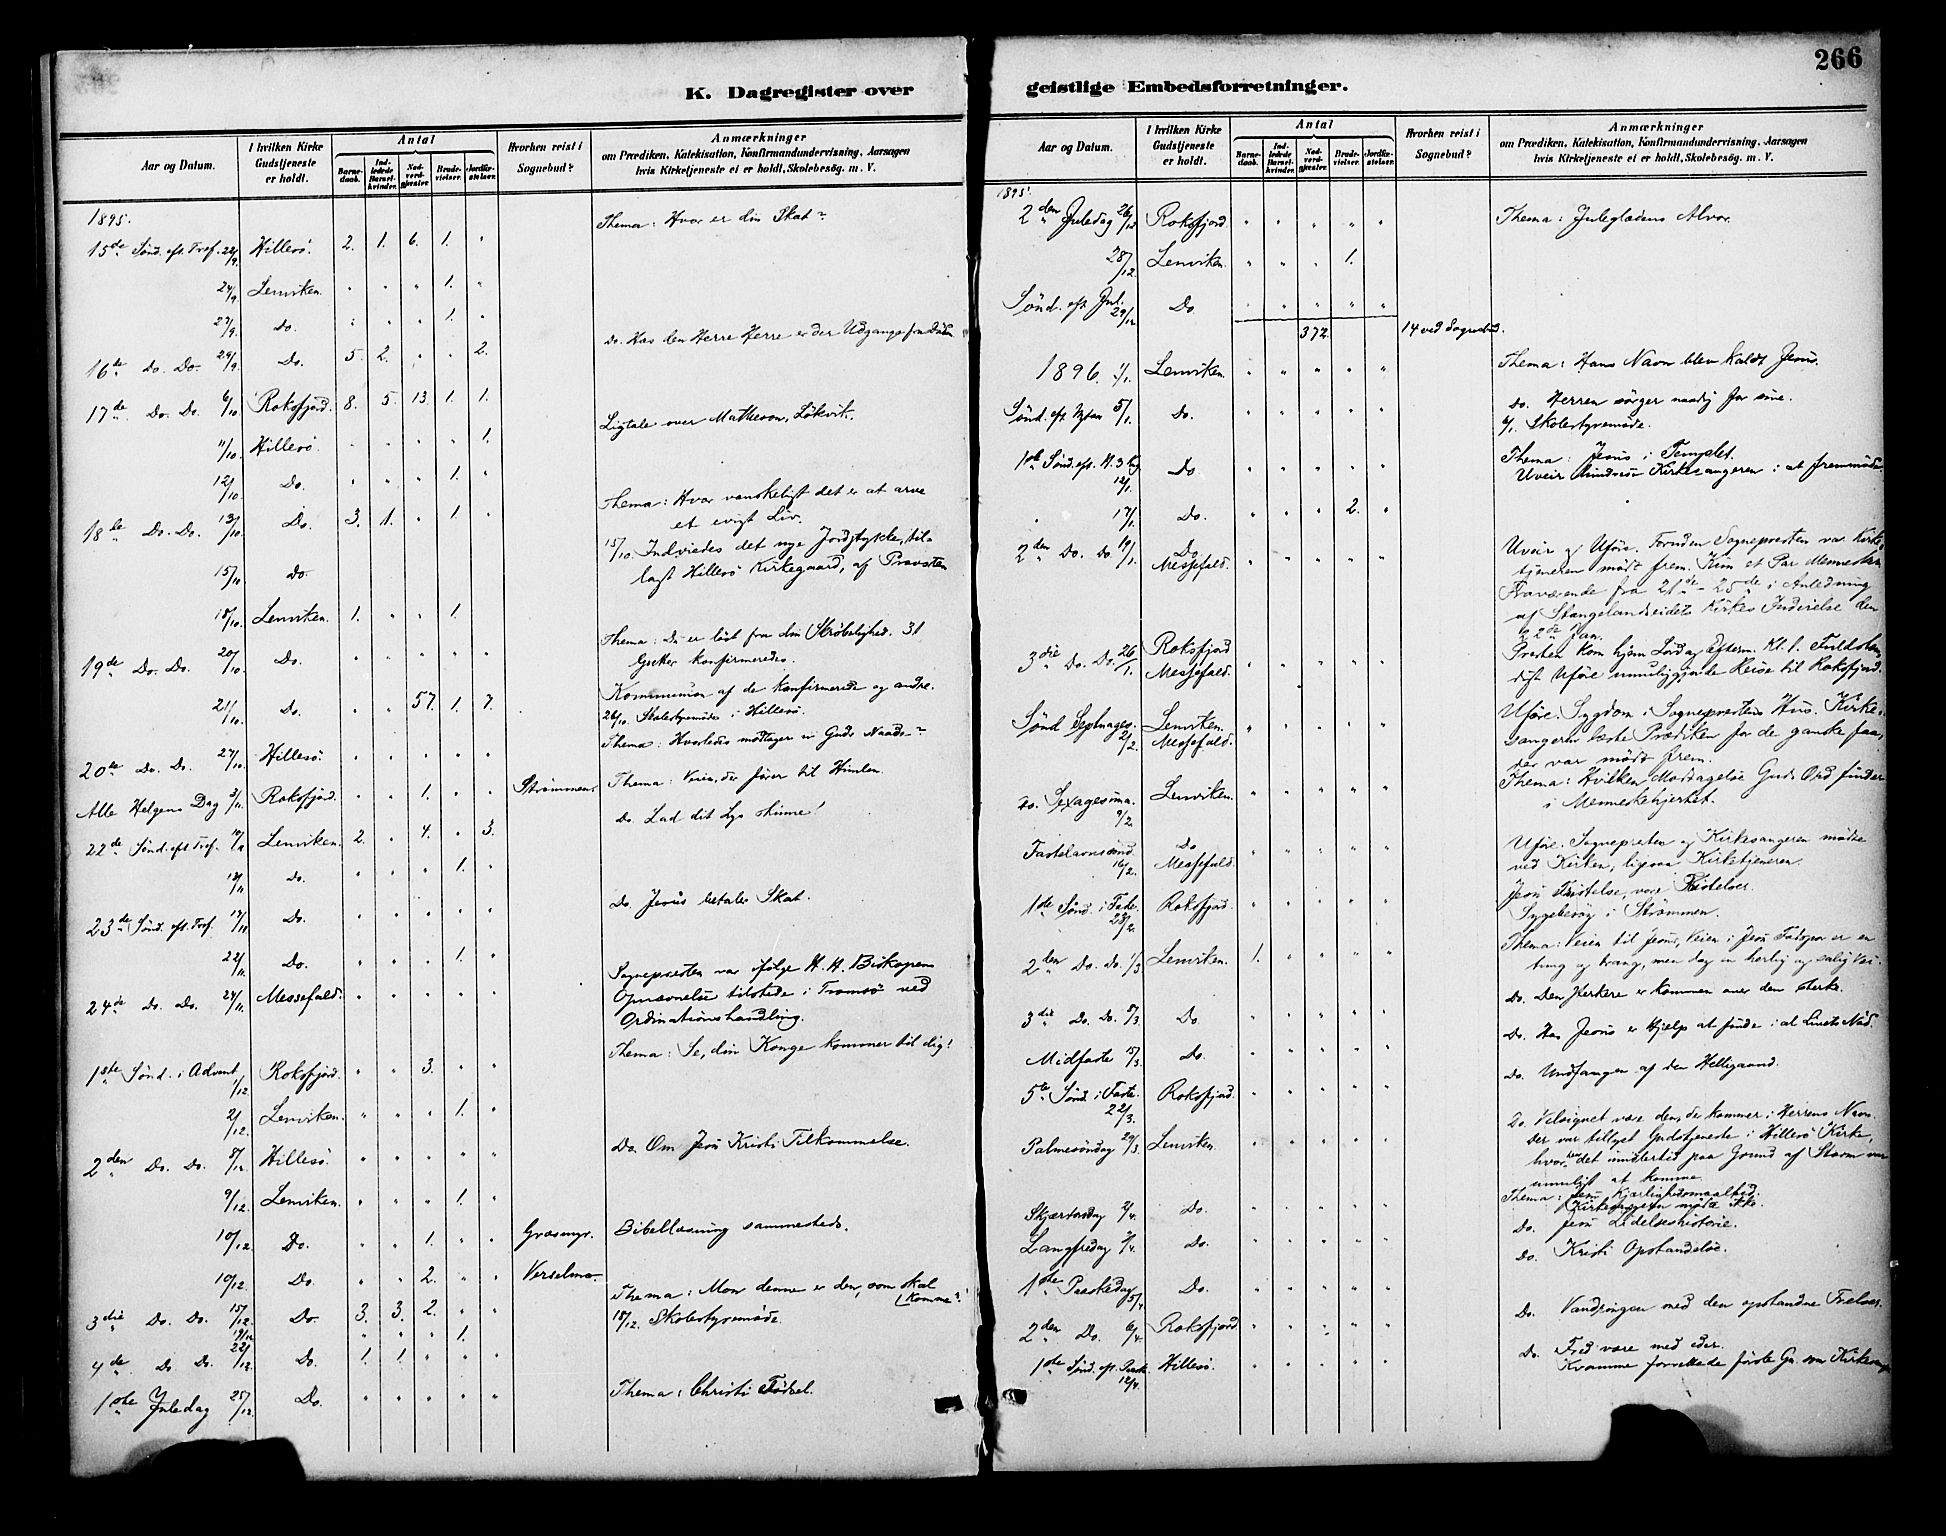 266
K. Dagregister over
geistlige Embedsforretninger.
Aar og Datum.
I hvilken Kirke Gudstjeneste er holdt.
Antal
Barnedaab.
Indledede Barselkvinder.
Nadverdgjæster.
Brudevielser.
Jordfæstelser.
Hvorhen reist i Sognebud?
Anmærkninger
om Prædiken, Katekisation, Konfirmandundervisning, Aarsagen
hvis Kirketjeneste ei er holdt, Skolebesøg. m. V.
1895.
Thema: Hvor er din Skat?
15de Sønd. eft. Tref. 22/9. Hillesö. 2. 1. 6. 1. "
24/9. Lenviken. " " " 1. "
27/9. Do. " " " 1. "
Do. Hos den Herre Herre er der Udgange fra Döden
16de Do. Do. 29/9. Do. 5. 2. " " 2.
17de Do. Do. 6/10. Roksfjord. 8. 5. 13. 1. 1.
Ligtale over Lökvik.
11/10. Hillesö. " " " " 1.
12/10. Do. " " " 1. "
Thema: Hvor vanskeligt det er at arve
et evigt Liv.
18de Do. Do. 13/10. Do. 3. 1. " 1. "
15/10. Indviedes det nye Jordstykke, til-
lagt Hillesö Kirkegaard, af Provsten
15/10 do.
18/10. Lenviken. 1. " " 1.
Thema: Du er löst fra din Skröbelighed. 31
konfirmeredes.
19de Do. Do. 20/10. Do. " " " " "
Kommunion af de konfirmerede og andre.
21/10. Do. " " 57. 1. 7.
26/10. Skolestyremöde i Hillesö.
Thema: Hvorledes modtager vi Guds Naade?
20de Do. Do. 27/10. Hillesö. " " " " "
Alle Helgens Dag 3/11. Roksfjord. " " 1. " " Strömmen. Thema: Veien, der förer til Himlen.
22de Sönd. eft. Tref. 10/11 Lenviken. 2. " 4. " 3. Do. Lad dit Lys skinne!
13/11 Do. " " " 1. "
23de Sönd. eft. Tref. 17/11 Do. " " " " " Do. Jesus betaler Skat.
22/11. Do. " " " 1. "
Sognepresten var ifölge H. H. Biskopens
24de Do. Do. 24/11. Messefald. " " " " "
tilstede i Tromsö ved
Ordinationshandling.
Thema: Se, din Konge kommer til dig!
1ste Sönd. i Advent 1/12 Roksfjord. " " 3. " "
2/12. Lenviken. " " " 1. "
Do. Om Jesu Kristi Tilkommelse.
2den Do. Do. 8/12 Hillesö. " " " " "
9/12. Lenviken. " " " 1. "
10/12. Do. " " 1. " " Græsmyr. Bibellæsning sammesteds.
10/12. Do. " " 2. " "
Thema: Mon denne er den, som skal
komme?
3die Do. Do. 15/12. Do. 3. 3. 2. " "
18/12. Skolestyremöde.
19/12 " " " 1.
4de Do. Do. 22/12. Do. 1. 1. " " "
1ste Juledag 25/12. Do. " " " " " Thema: Christi Födsel.
Aar og Datum.
I hvilken Kirke Gudstjeneste er holdt.
Antal
Barnedaab.
Indledede Barselkvinder.
Nadverdgjæster.
Brudevielser.
Jordfæstelser.
Hvorhen reist i Sognebud?
Anmærkninger
om Prædiken, Katekisation, Konfirmandundervisning, Aarsagen
hvis Kirketjeneste ei er holdt, Skolebesøg. m. V.
1895.
2den Juledag 26/12 Roksfjord " " " " " Thema: Juleglædens Alvor.
28/12. Lenviken. " " " 1.
Sönd. eft. Jul. 29/12 Do. " " " " "
372. 14 ved Sognebud.
1896. 1/1. Lenviken. " " " " " Thema: Hans Navn blev kaldt Jesus.
Sönd. eft. Nytaar 5/1. Do. " " " " " Do. Herren sörger naadig for sine.
6/1. Skolestyremöde.
Thema: Jesus i Templet.
1ste Sönd. eft. H. 3 Kg. 12/1. Do. " " " " "
Uveir hindrede Kirkesangeren i at fremmöde
17/1. Do. " " " 2. "
2den Do. Do. 19/1. Do. Messefald. " " " " "
Uveir og Uföre. Foruden Sognepresten var Kirke-
tjeneren mödt frem. Kun et Par Mennesker
Fraværende fra 21de - 25de i Anledning
af Stangelandseidets Kirkes Indvielse den
22de Jan.
3die Do. Do. 26/1. Roksfjord Messefald. Presten kom hjem Lördag Efterm. Kl. 1. Fuldstæn-
digt Uföre umuliggjorde Reise til Roksfjord.
Sönd Septuages. 2/2. Lenviken. Messefald. " " " "
Uföre. Sygdom i Sogneprestens Hus. Kirke-
sangeren læste Prædiken for de ganske faa,
der var mödt frem.
Thema: Hvilken Modtagelse Guds Ord finder
i Menneskehjertet.
Do. Sexagesima. 9/2. Lenviken. " " " " "
Fastelavnssönd. 16/2. Do Messefald. " " " " "
Uföre. Sognepresten og Kirkesangeren mödte
ved Kirken, ligesaa Kirketjeneren.
Jesu Fristelse, vore Fristelser.
1ste Sönd. i Faste. 23/2. Roksfjord. " " " " "
Sygebesög i Strömmen.
Thema: Veien til Jesus, Veien i Jesu Fodspor er en
tung og trang, men dog en herlig og salig Vei.
2den Do. Do. 1/3 Lenviken. 1. " " " "
Do. Den sterkere er kommen over den sterke.
3die Do. Do. 8/3. Do. " " " " "
Do. Hos Jesus er Hjælp at finde i al Livets Nöd.
Midfaste 15/3. Do. " " " " "
Do. Undfangen af den Helligaand.
5te Sönd. i Faste. 22/3. Roksfjord. " " " " "
Do. Velsignet være den, der kommer i Herrens Navn.
Der var tillyst Gudstjeneste i Hillesö Kirke,
hvor det imidlertid paa Grund af Storm var
umuligt at komme.
Palmesöndag 29/3. Lenviken. " " " " "
Thema: Jesu Kjærlighedsmaaltid.
Kirkesangeren mötte ikke.
Skjærtorsdag 2/4. Do. " " " " "
Do. Jesu Lidelseshistorie.
Langfredag 3/4. Do. " " " " "
Do. Kristi Opstandelse.
1ste Paaskedag 5/4 Do. " " " " "
Do. Vandringen med den opstandne Frelser.
2den Do. 6/4. Roksfjord " " " " "
Do. Fred være med eder.
1ste Sönd. eft. Paaske 12/4. Hillesö. " " " " "
Kramme forrettede förste Gn. som Kirkesanger